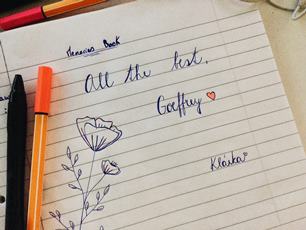 Memories Book
All the best,
Goeffrey
Klárka